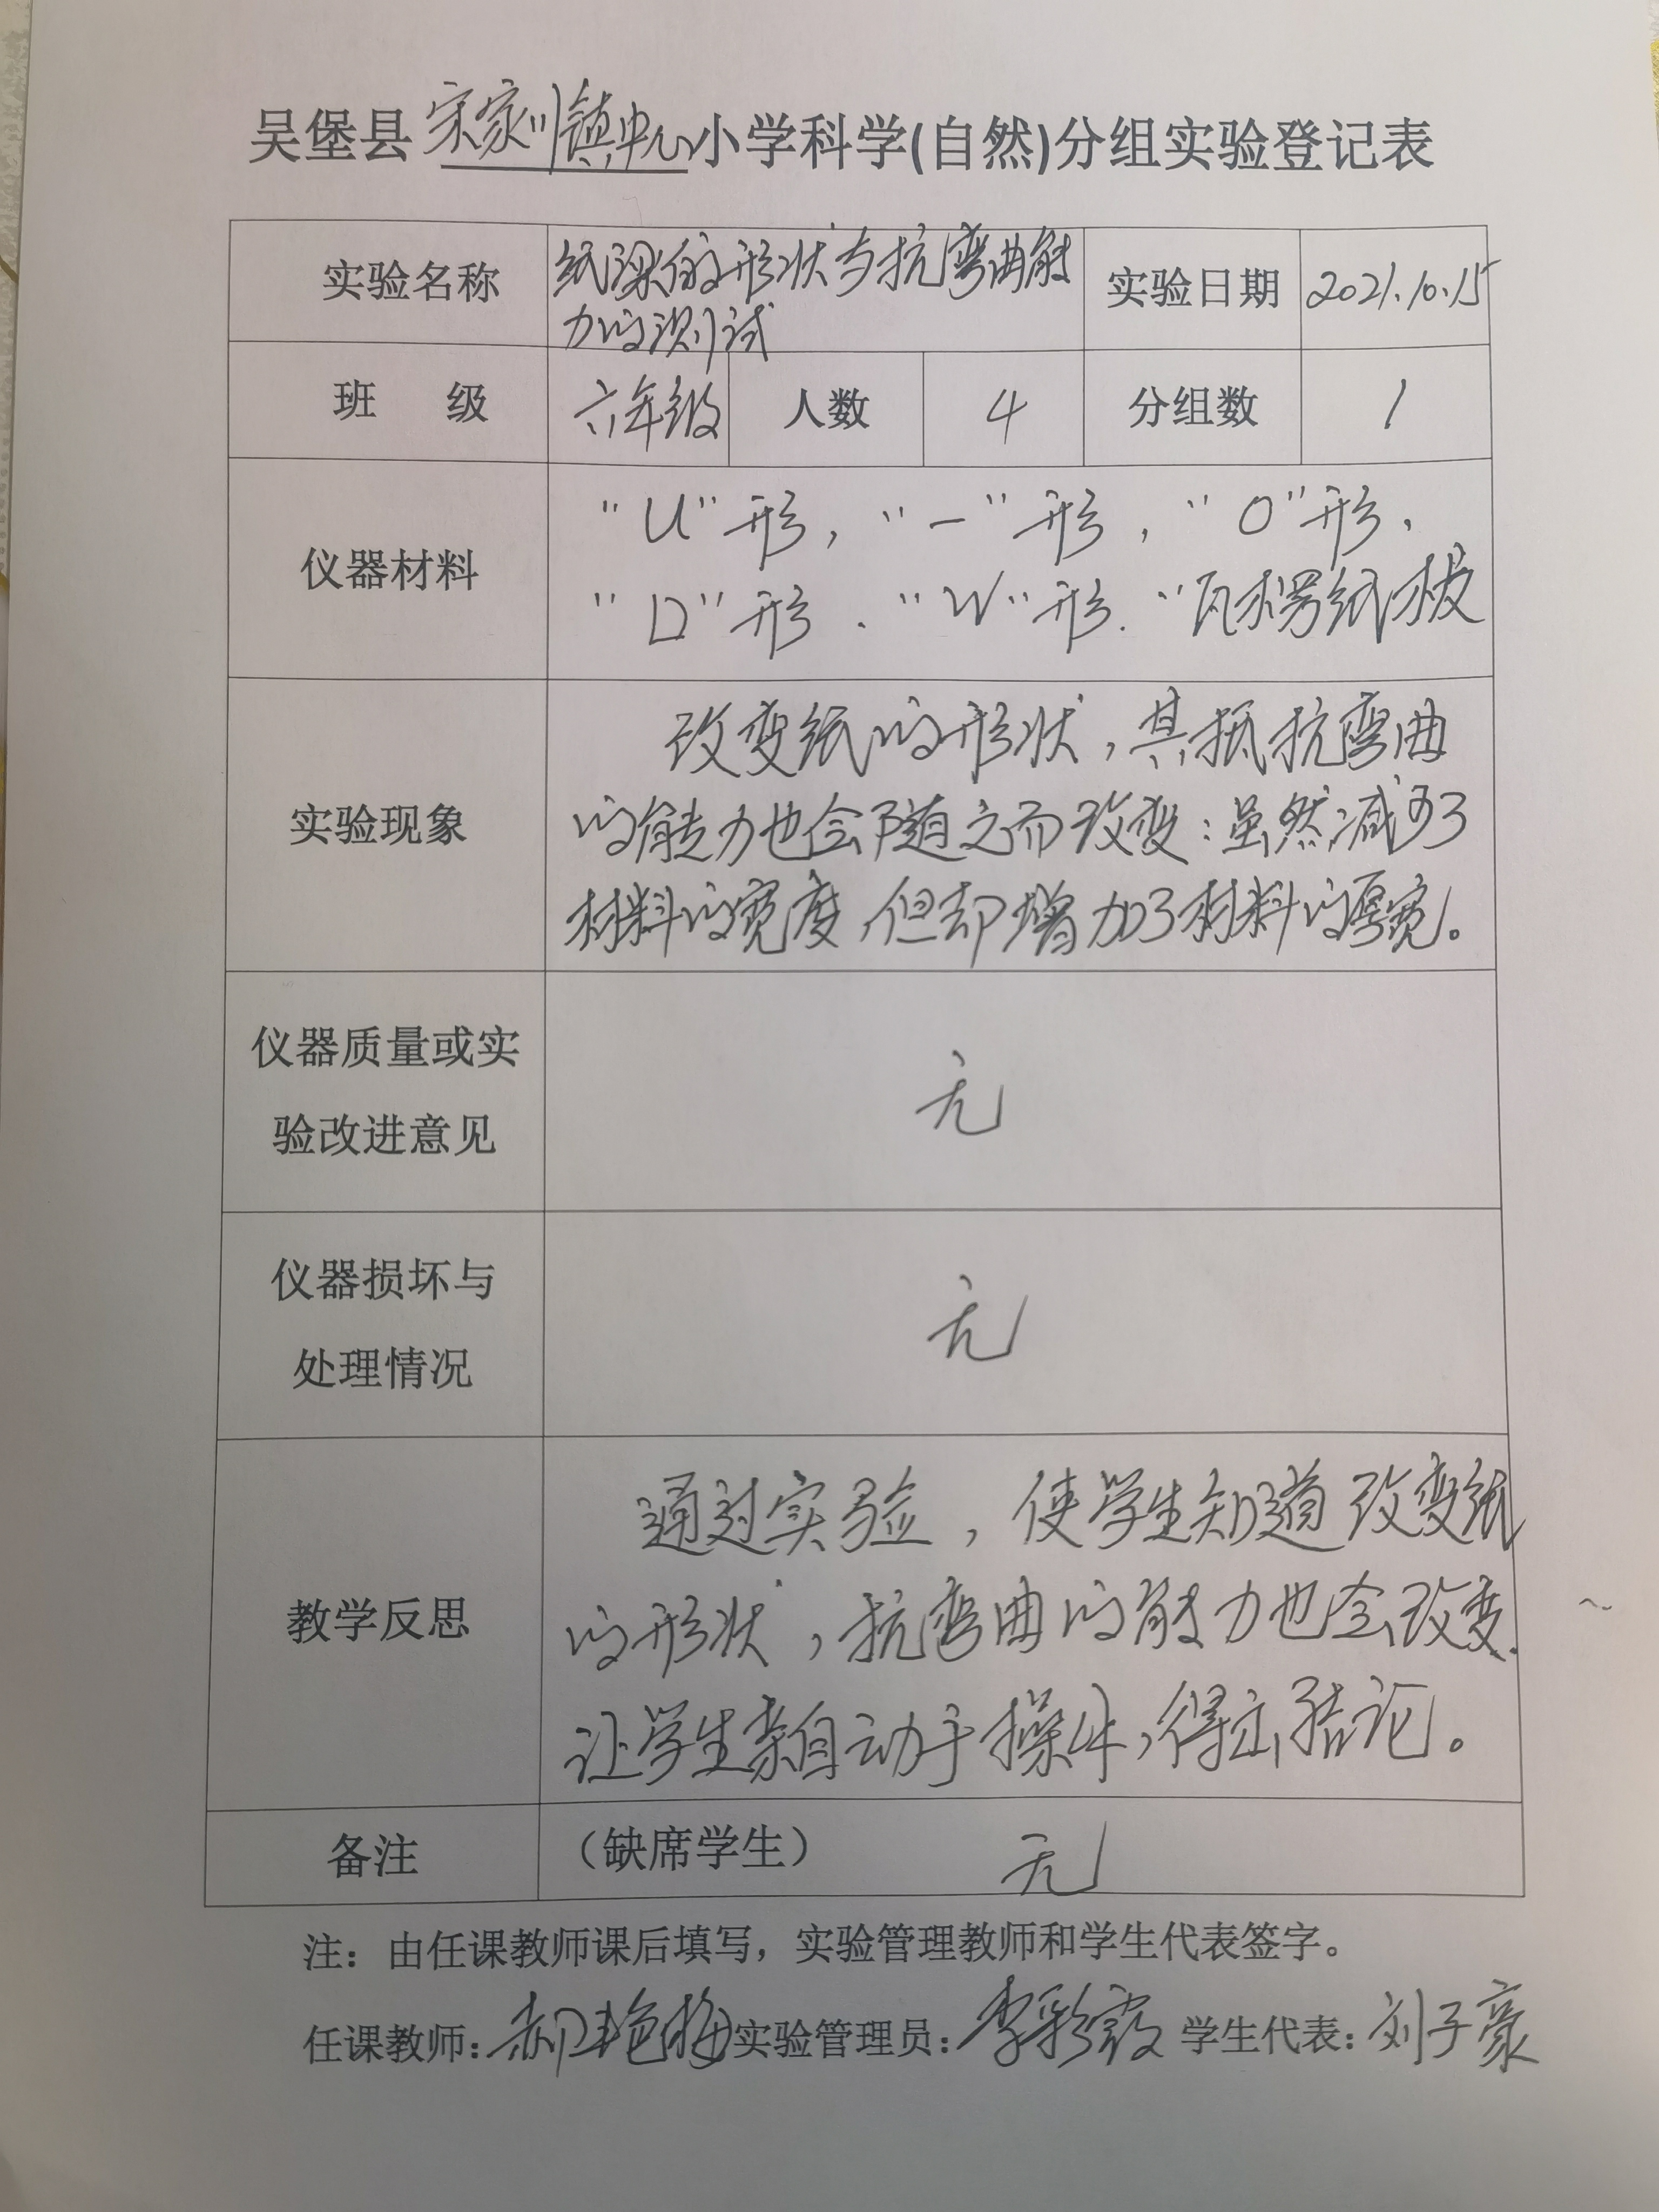 吴堡县宋家川镇中心小学科学(自然)分组实验登记表
实验名称 纸梁的形状与抗弯曲能 实验日期 2021.10.15
力的测试
班 级 六年级 人数 4 分组数 1
仪器材料
“U”形，“一”形，“O”形，
“口”形．“W”形．“瓦楞纸板
实验现象
改变纸的形状，其抵抗弯曲
的能力也会随之而改变：虽然减少了
材料的宽度，但却增加了材料的厚宽。
仪器质量或实
验改进意见
无
仪器损坏与
处理情况
无
教学反思
通过实验，使学生知道改变纸
的形状，抗弯曲的能力也会改变．
让学生亲自动手操作，得出结论。
备注 （缺席学生） 无
注：由任课教师课后填写，实验管理教师和学生代表签字。
任课教师：郝艳梅 实验管理员：李彩霞 学生代表：刘子豪